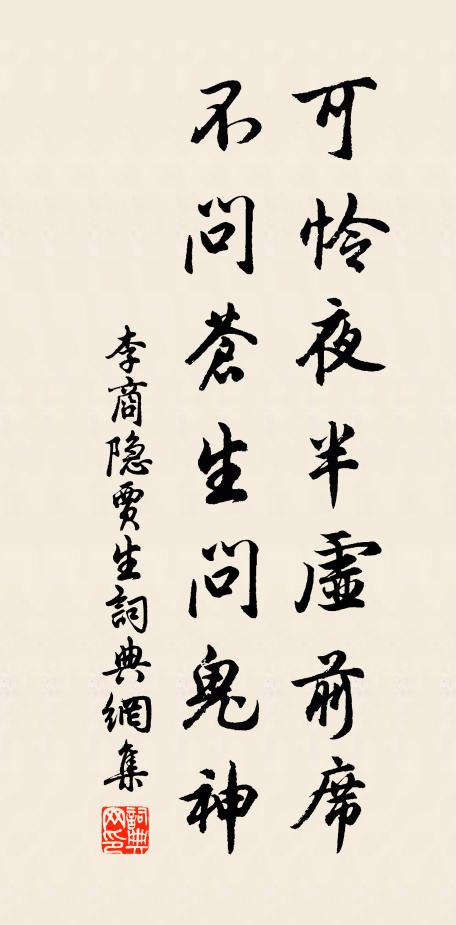 可怜夜半虚前席
不问苍生问鬼神
李商隐贾生词典網集
詞典网印